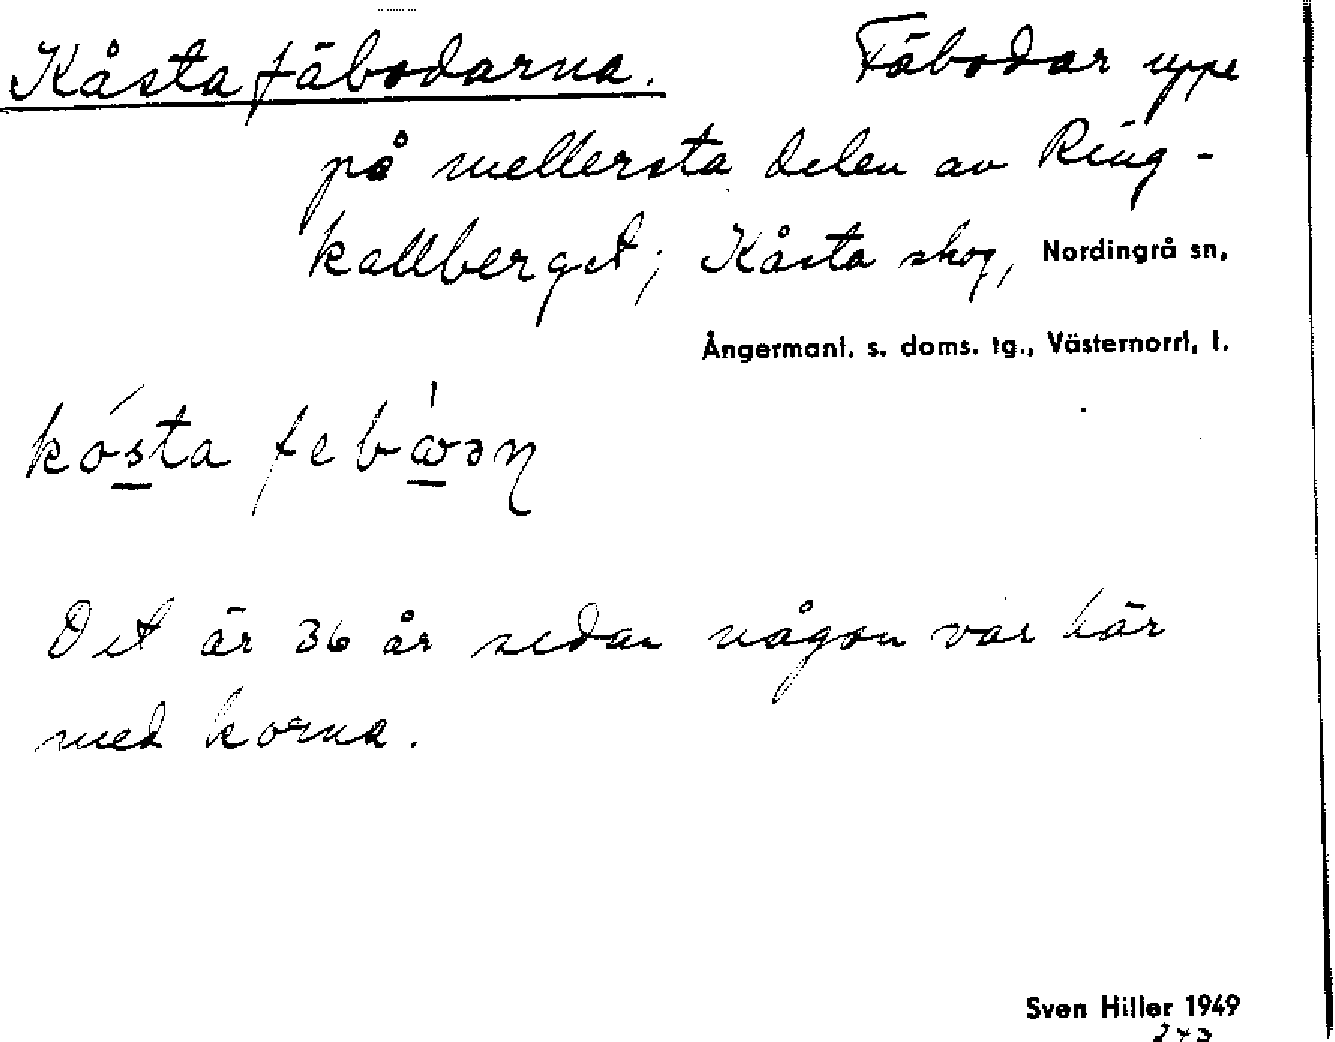 Kåsta fäbodarna. Fäbodar uppe
på mellersta delen av Ring-
kallberget; Kåsta skog, Nordingrå sn,
Ångermanl. s. doms. tg., Västernorrl. l.
kósta febɷ́əɳ
Det är 36 år sedan någon var här
med korna.
Sven Hiller 1949
243